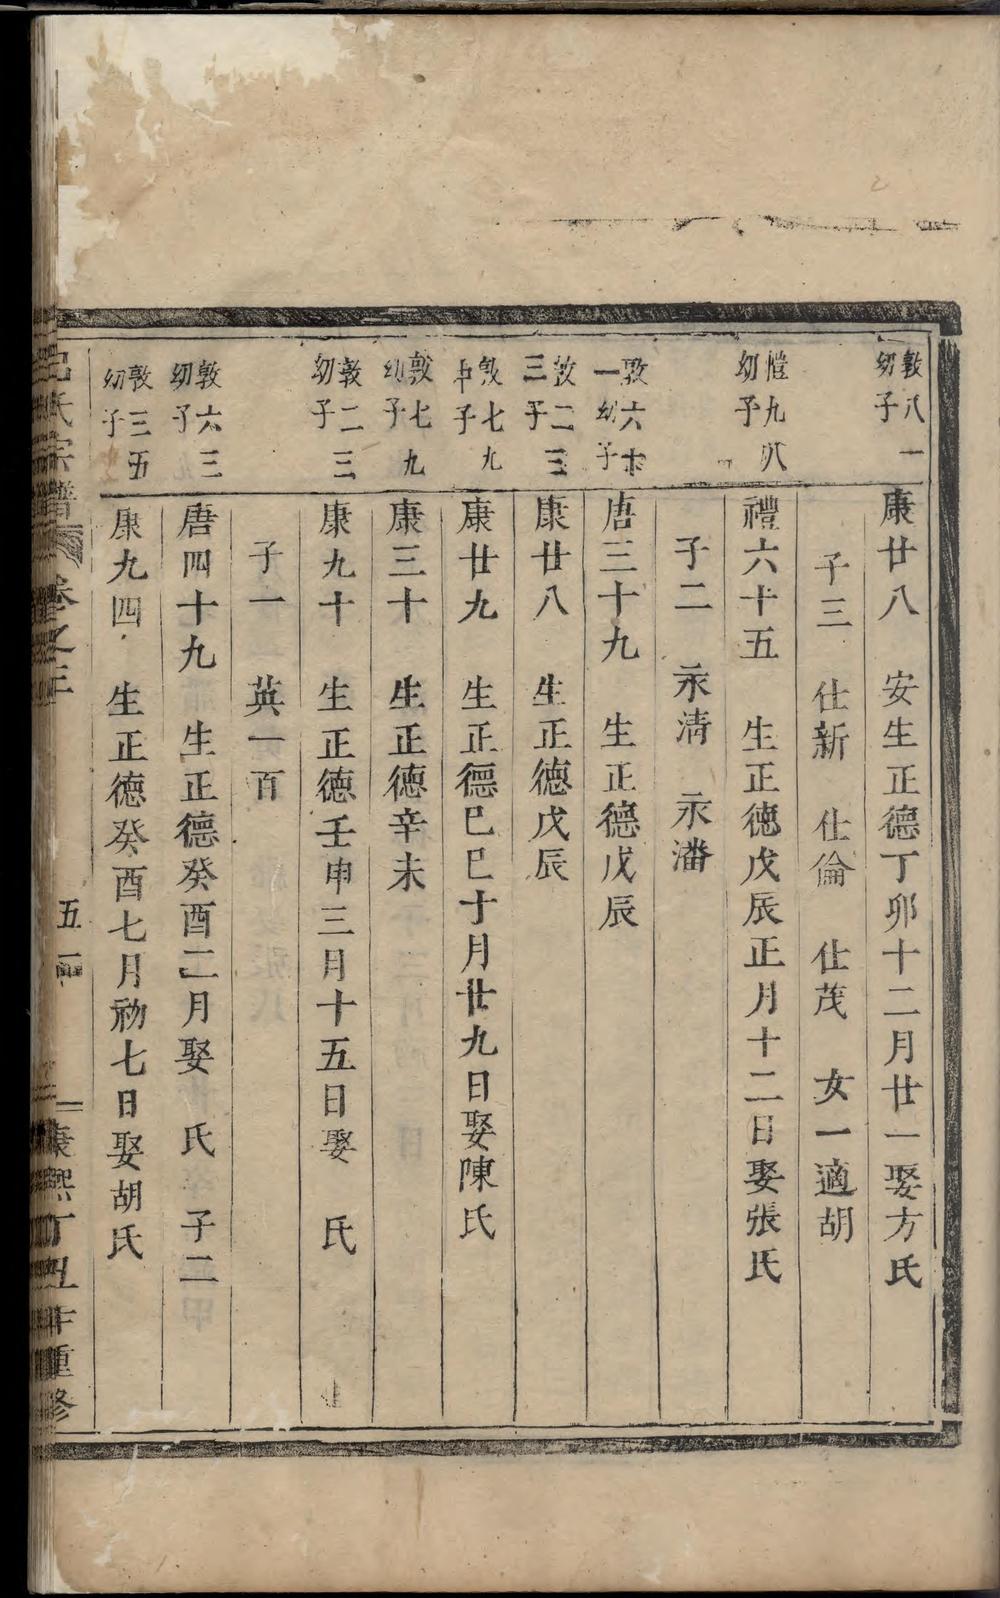 敦八一
幼子
康廿八 安生正德丁卯十二月廿一娶方氏
子三 仕新 仕倫 仕茂 女一適胡
愷九八
幼子
禮六十五 生正德戊辰正月十二日娶張氏
子二 汞清 汞潘
敦六十
一幼子
唐三十九 生正德戊辰
敦二三
三子
康廿八 生正德戊辰
敦七九
子
康廿九 生正德巳巳十月廿九日娶陳氏
敦七九
幼子
康三十 生正德辛未
敦二三
幼子
康九十 生正德壬申三月十五日娶 氏
子一 英一百
敦六三
幼子
唐四十九 生正德癸酉二月娶 氏 子二
敦三五
幼子
康九四 生正德癸酉七月初七日娶胡氏
氏宗譜 卷之 五 康熙丁丑年重修